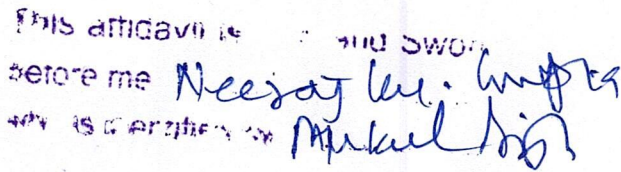 This affidavit is and Sworn
before me Neeraj Ku. Gupta
who is identified by Singh